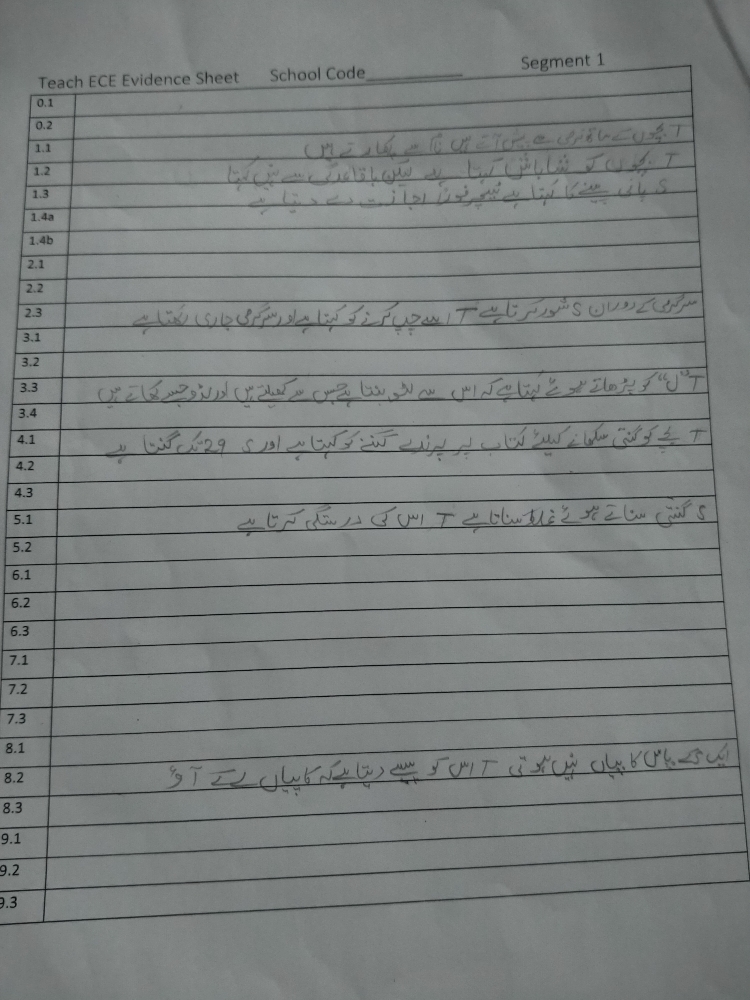 Teach ECE Evidence Sheet School Code__________ Segment 1
0.1
0.2
1.1 T بچوں کے ساتھ نرمی سے پیش آتے ہیں نام سے پکارتے ہیں
1.2 T بچوں کو شاباش کہتا ہے لیکن باقاعدگی سے نہیں کہتا
1.3 S پانی پینے کا کہتا ہے ٹیچر فوراً اجازت دے دیتا ہے
1.4a
1.4b
2.1
2.2
2.3 سرگرمی کے دوران S شور کرتا ہے T اسے چپ کرنے کو کہتا ہے اور سرگرمی جاری رکھتا ہے
3.1
3.2
3.3 T "ل" کو پڑھاتے ہوئے کہتا ہے کہ اس سے لٹو بنتا ہے جس سے کھیلتے ہیں اور لڈو جسے کھاتے ہیں
3.4
4.1 T بچے کو گنتی سکھانے کیلئے کتاب پر پرندے گننے کو کہتا ہے اور S 29 تک گنتا ہے
4.2
4.3
5.1 S گنتی سناتے ہوئے غلط سناتا ہے T اس کی درستگی کرتا ہے
5.2
6.1
6.2
6.3
7.1
7.2
7.3
8.1
8.2 ایک بچے پاس کاپیاں نہیں ہوتی T اس کو پیسے دیتا ہے کہ کاپیاں لے آؤ
8.3
9.1
9.2
9.3